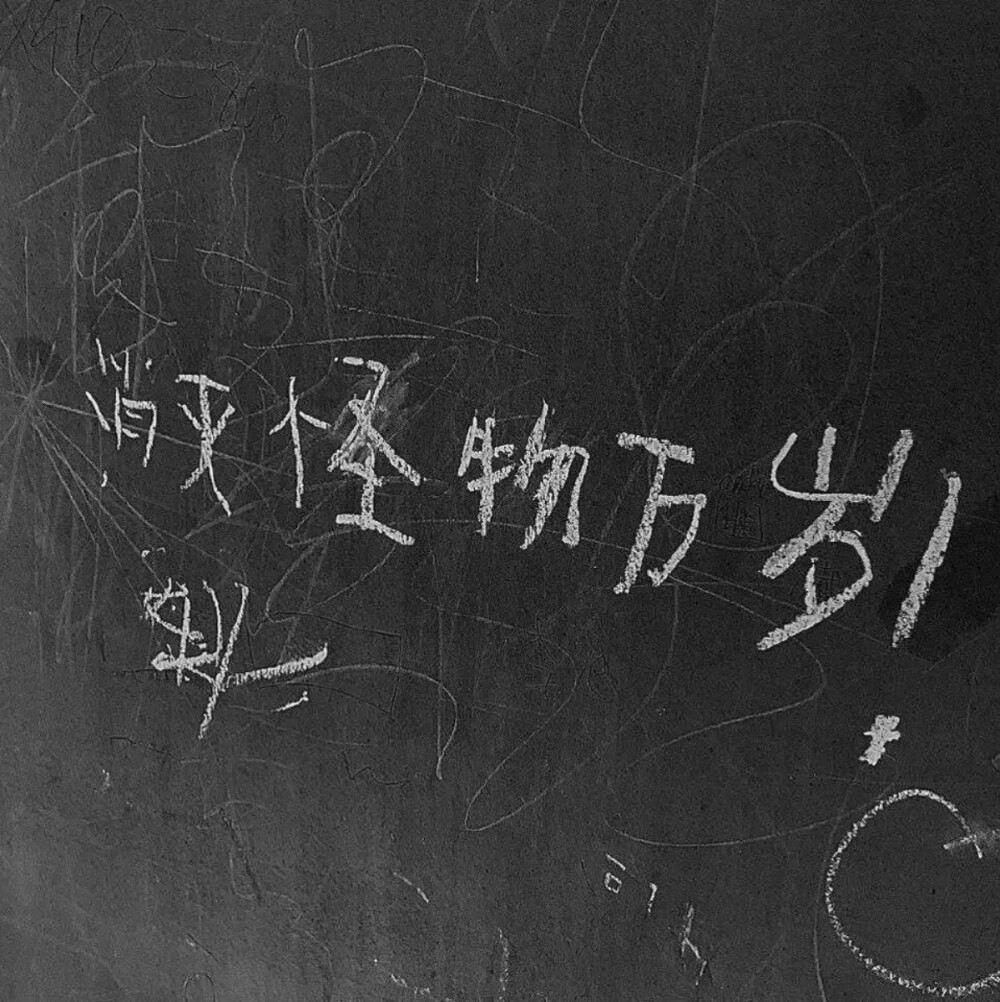 消灭怪物万岁!